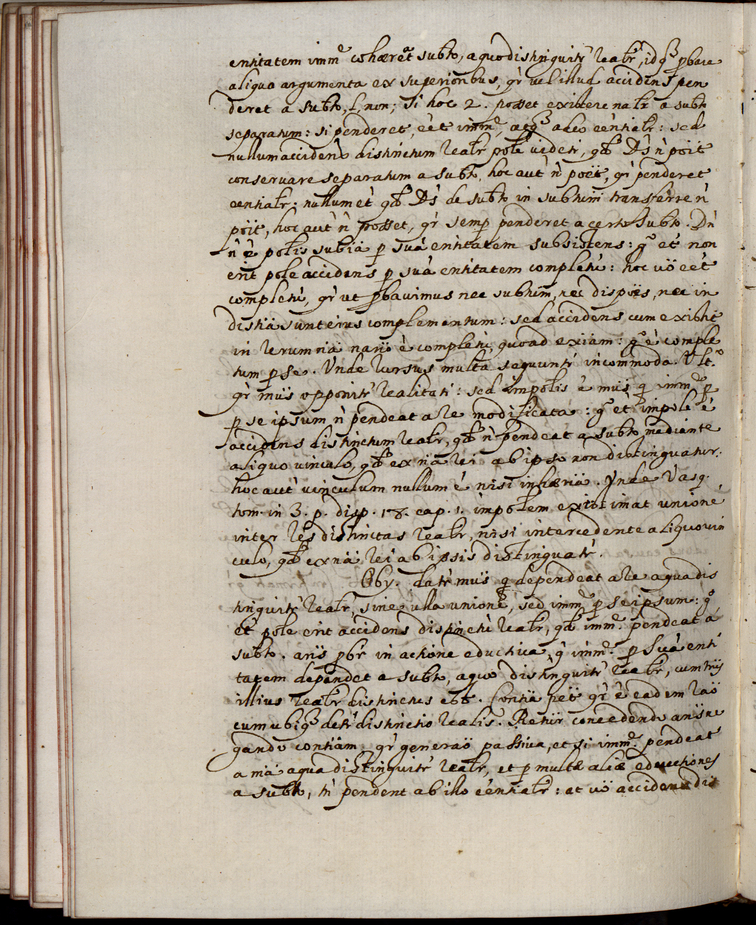 entitatem imm.e cohæret subto, a quo distinguitr realr, idq, pbare
aliqua argumenta ex superioribus, qr vel illud accidens pen
deret a subto, l, non; si hoc 2. posset existere nalr a subto
separatum: si penderet, eet imme, atq, adeo eentialr: sed
nullum accidens distinctum realr pole videri, qd Ds n poit
conservare separatum a subto, hoc aut n poēt, qr penderet
eentialr; nullum et qd Ds de subto in subtum transferre n
poit, hoc aut n posset, qr semp penderet a certo subto. Dn
n e polis subia p sua entitatem subsistens: g et non
erit pole accidens p sua entitatem completu: hoc vo eet
completu, qr ut pbavimus nec subtum, nec dispoes, nec in
distia sunt eius complementum: sed accidens cum existit
in rerum na non e completu, quoad exiam: g e comple
tum p se. Unde rursus multa sequuntr incommoda. Ult.o
qr mus opponitr realitati: sed impolis e mus q imme p
p se ipsum n pendeat a re modificata: g et impole e
accidens distinctum realr, qd n pendeat a subto mediante
aliquo vinculo, qd ex na rei ab ipso non distinguatur:
hoc aut vinculum nullum e nisi inhæria. Unde Vasq.
tom. in 3. p. disp. 18. cap. 1. impolem existimat unione
inter res distinctas realr, nisi intercedente aliquo vin
culo, qd ex na rei ab ipsis distinguatr.
Oby. datr mus q dependeat a re a qua dis
tinguitr realr, sine ulla unione, sed imme p se ipsum: g
et pole erit accidens distinctu realr, qd imme pendeat a
subto. ans pbr in actione eductiva, q imme p sua enti
tatem dependet a subto, a quo distinguitr realr, cum tns
illius realr distinctus est. Contia pet qr e eadem rao
cum ubiq, detr distinctio realis. Retur concedendo ans ne
gando contiam: qr generao passiva, et si imme pendeat
a ma a qua distinguitr realr, et p multæ aliæ eductiones
a subto, tn pendent ab illo eentialr: at vo accidens dis